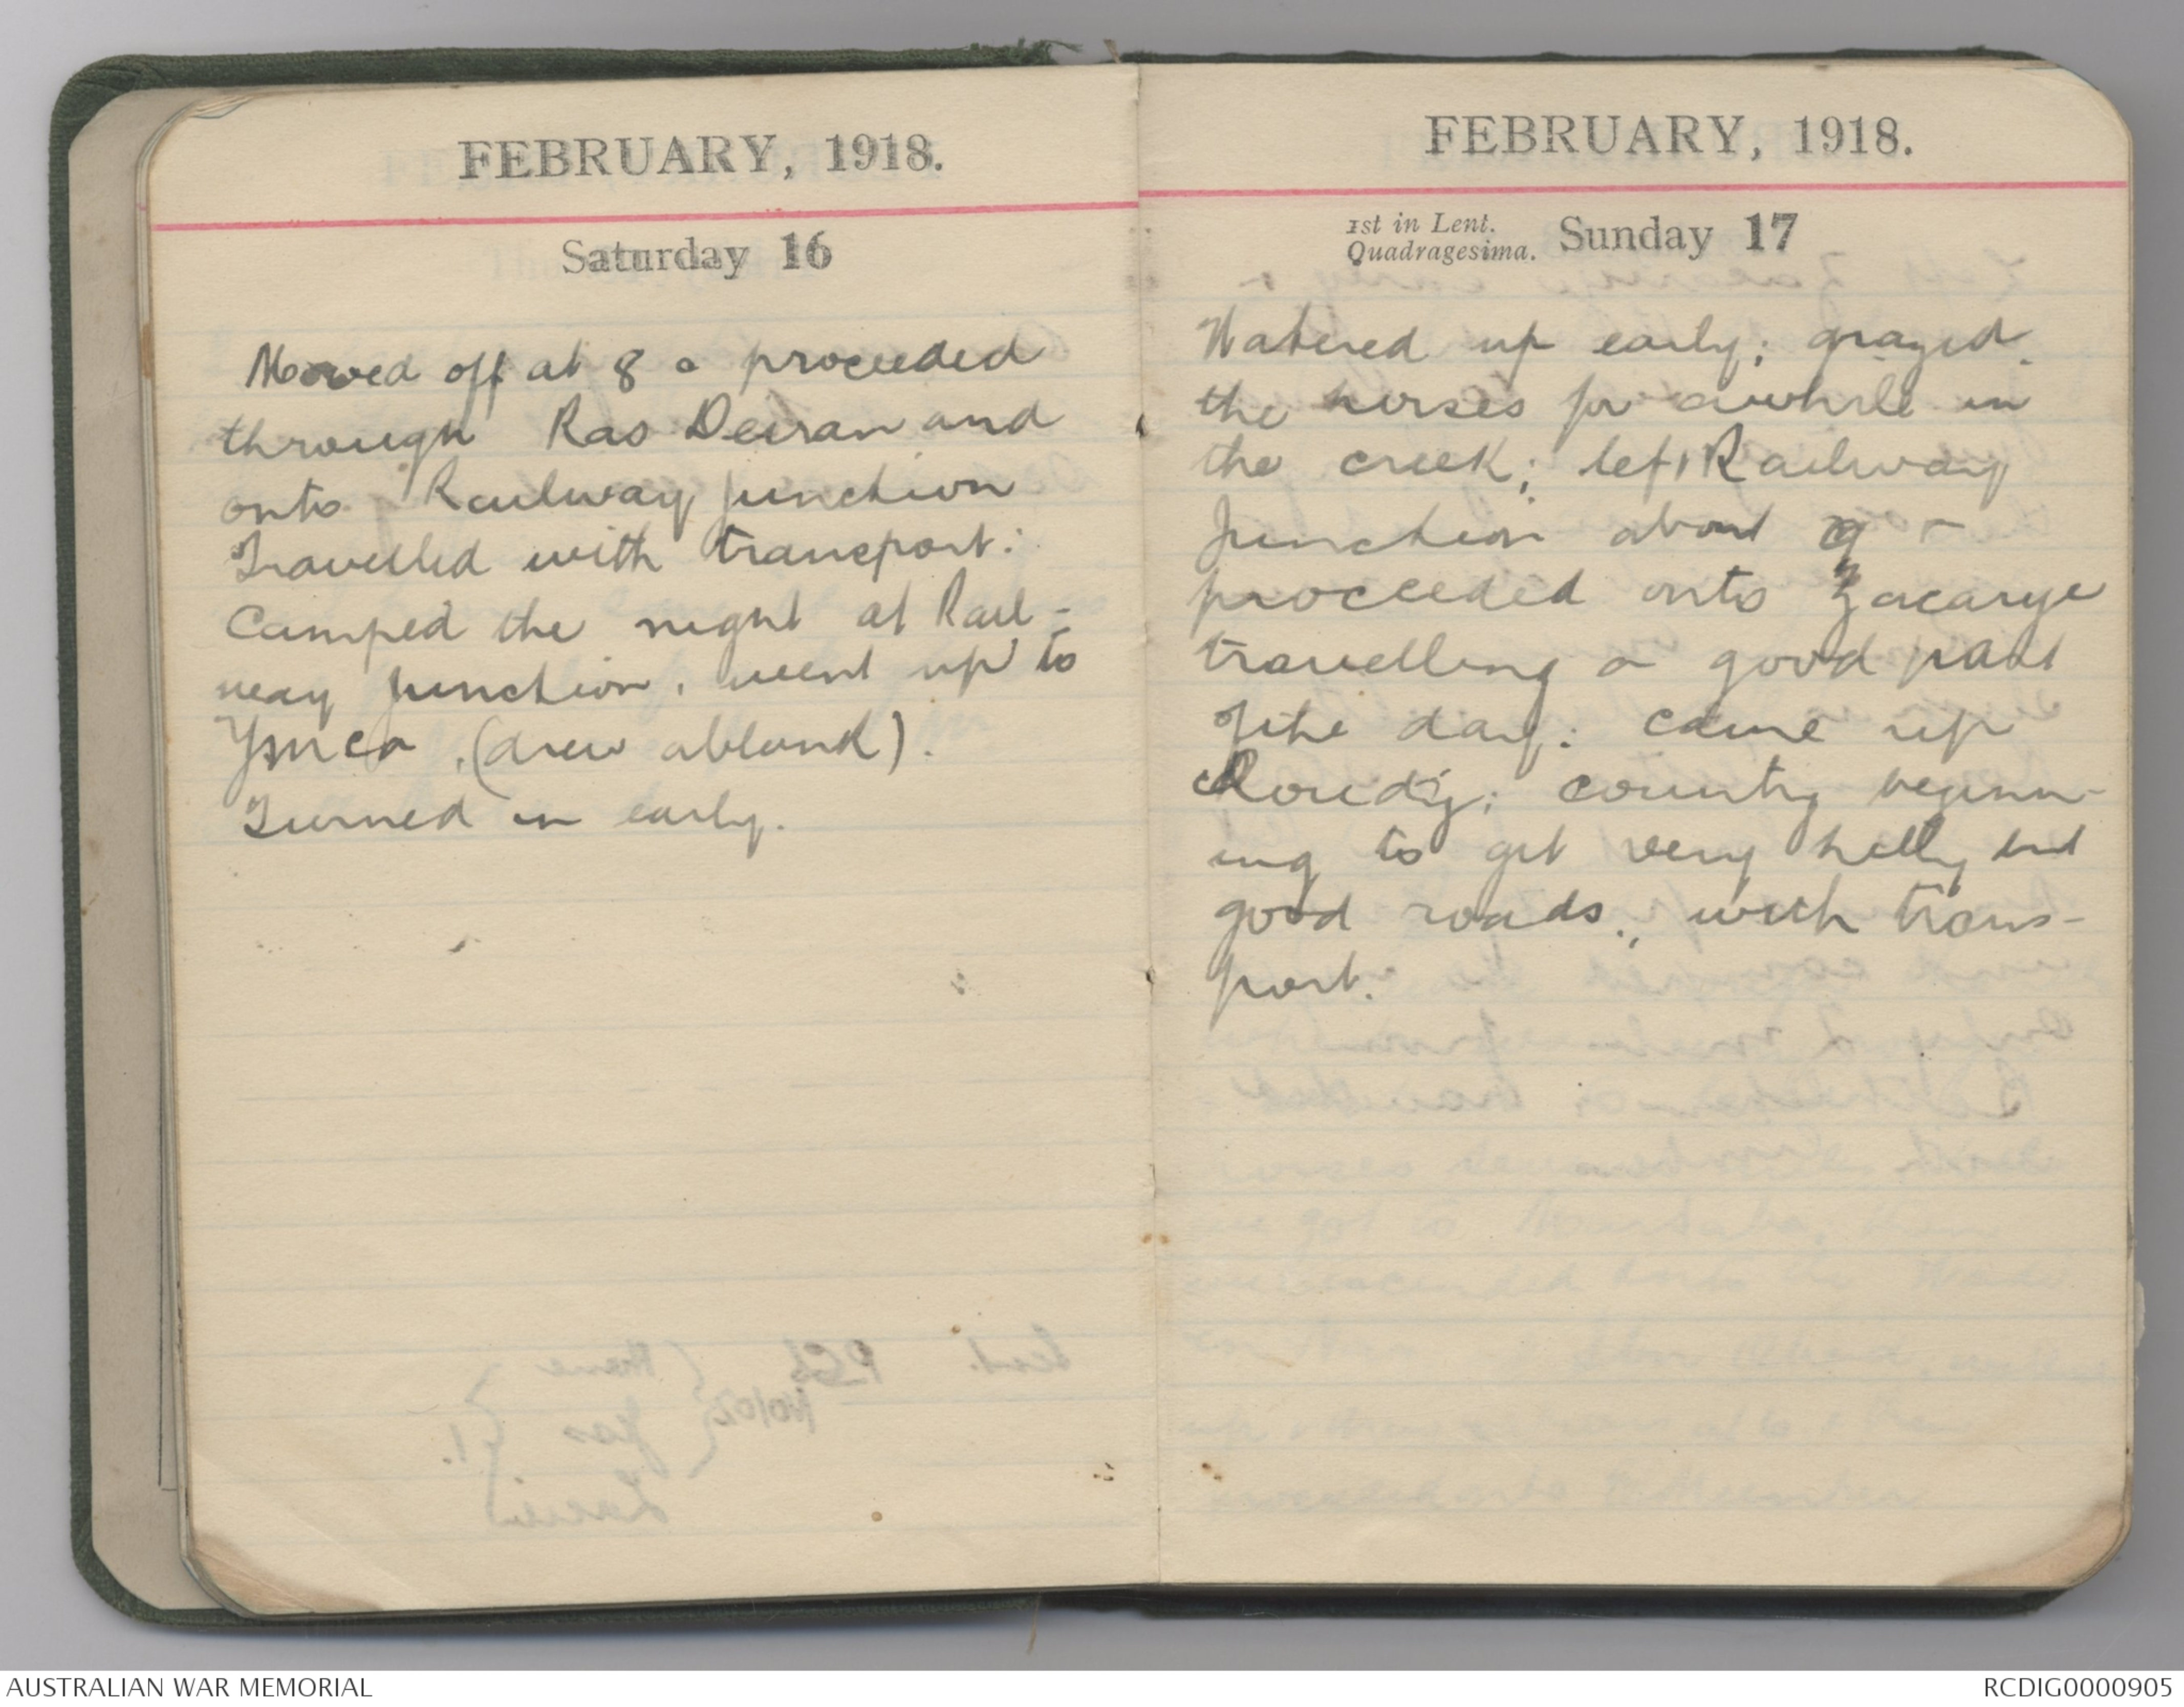 FEBRUARY, 1918.
Saturday 16
Moved off at 8 & proceeded
through Ras Deiran and
onto Railway Junction
Travelled with transport:
Camped the night at Rail-
way Junction, went up to
Ymca. (drew a blank).
Turned in early.
FEBRUARY, 1918.
1st in Lent.
Quadragesima. Sunday 17
Watered up early; grazed
the horses for awhile in
the creek; left Railway
Junction about 9 &
proceeded onto Zacarye
travelling a good part
of the day: came up
cloudy; country beginn-
ing to get very hilly but
good roads., with trans-
port.
AUSTRALIAN WAR MEMORIAL
RCDIG0000905